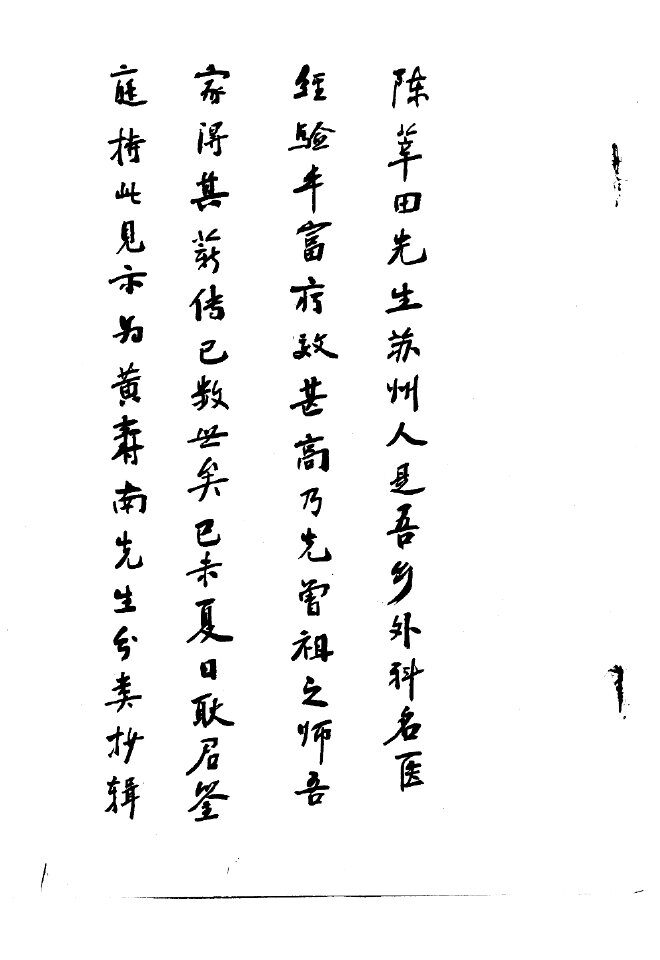 陈莘田先生苏州人是吾乡外科名医
经验丰富疗效甚高乃先曾祖之师吾
家得其薪传已数世矣己未夏日耿君鉴
庭持此见示为黄寿南先生分类抄辑